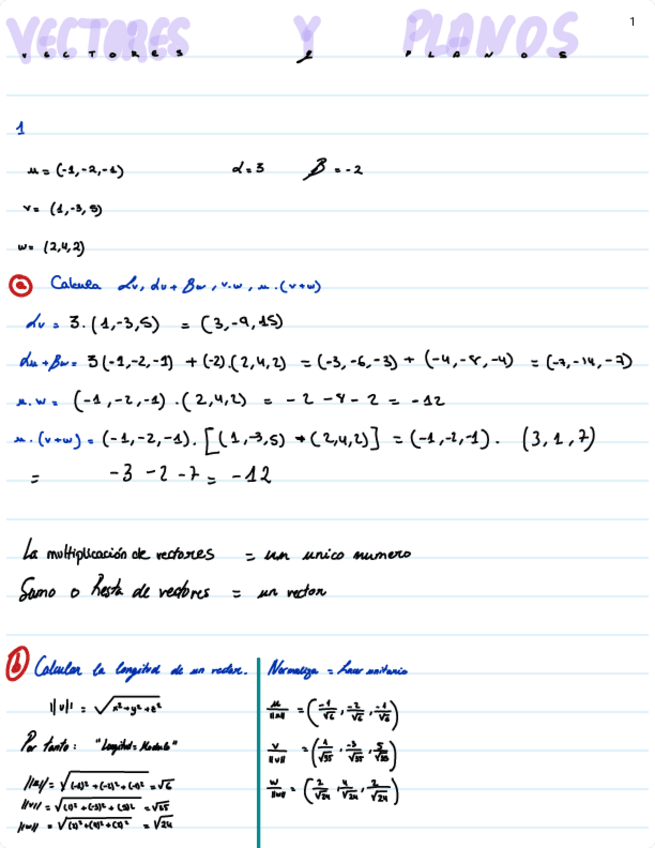 VECTORES Y PLANOS
1
VECTORES Y PLANOS
1
u = (-1,-2,-1) α = 3 β = -2
v = (1,-3,5)
w = (2,4,2)
a Calcula αv, αu + βw, v.w, u.(v+w)
αv = 3.(1,-3,5) = (3,-9,15)
αu + βw = 3(-1,-2,-1) + (-2).(2,4,2) = (-3,-6,-3) + (-4,-8,-4) = (-7,-14,-7)
u.w = (-1,-2,-1).(2,4,2) = -2 -8 -2 = -12
u.(v+w) = (-1,-2,-1).[(1,-3,5) + (2,4,2)] = (-1,-2,-1). (3,1,7)
= -3 -2 -7 = -12
La multiplicación de vectores = un unico numero
Suma o Resta de vectores = un vector
b Calcular la longitud de un vector.
||v|| = √x²+y²+z²
Por tanto: "Longitud = Modulo"
||u|| = √(-1)²+(-2)²+(-1)² = √6
||v|| = √(1)²+(-3)²+(5)² = √35
||w|| = √(2)²+(4)²+(2)² = √24
Normaliza = hacer unitario
u/||u|| = (-1/√6, -2/√6, -1/√6)
v/||v|| = (1/√35, -3/√35, 5/√35)
w/||w|| = (2/√24, 4/√24, 2/√24)